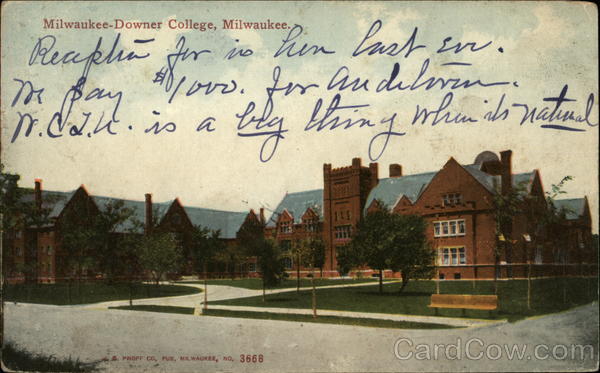 Milwaukee-Downer College, Milwaukee.
Reception for is here last eve.
We pay $1000. for Auditorium.
W.C.T.U. is a big thing when its natural
E. C. KROPP CO., PUB., MILWAUKEE, NO. 3668
CardCow.com